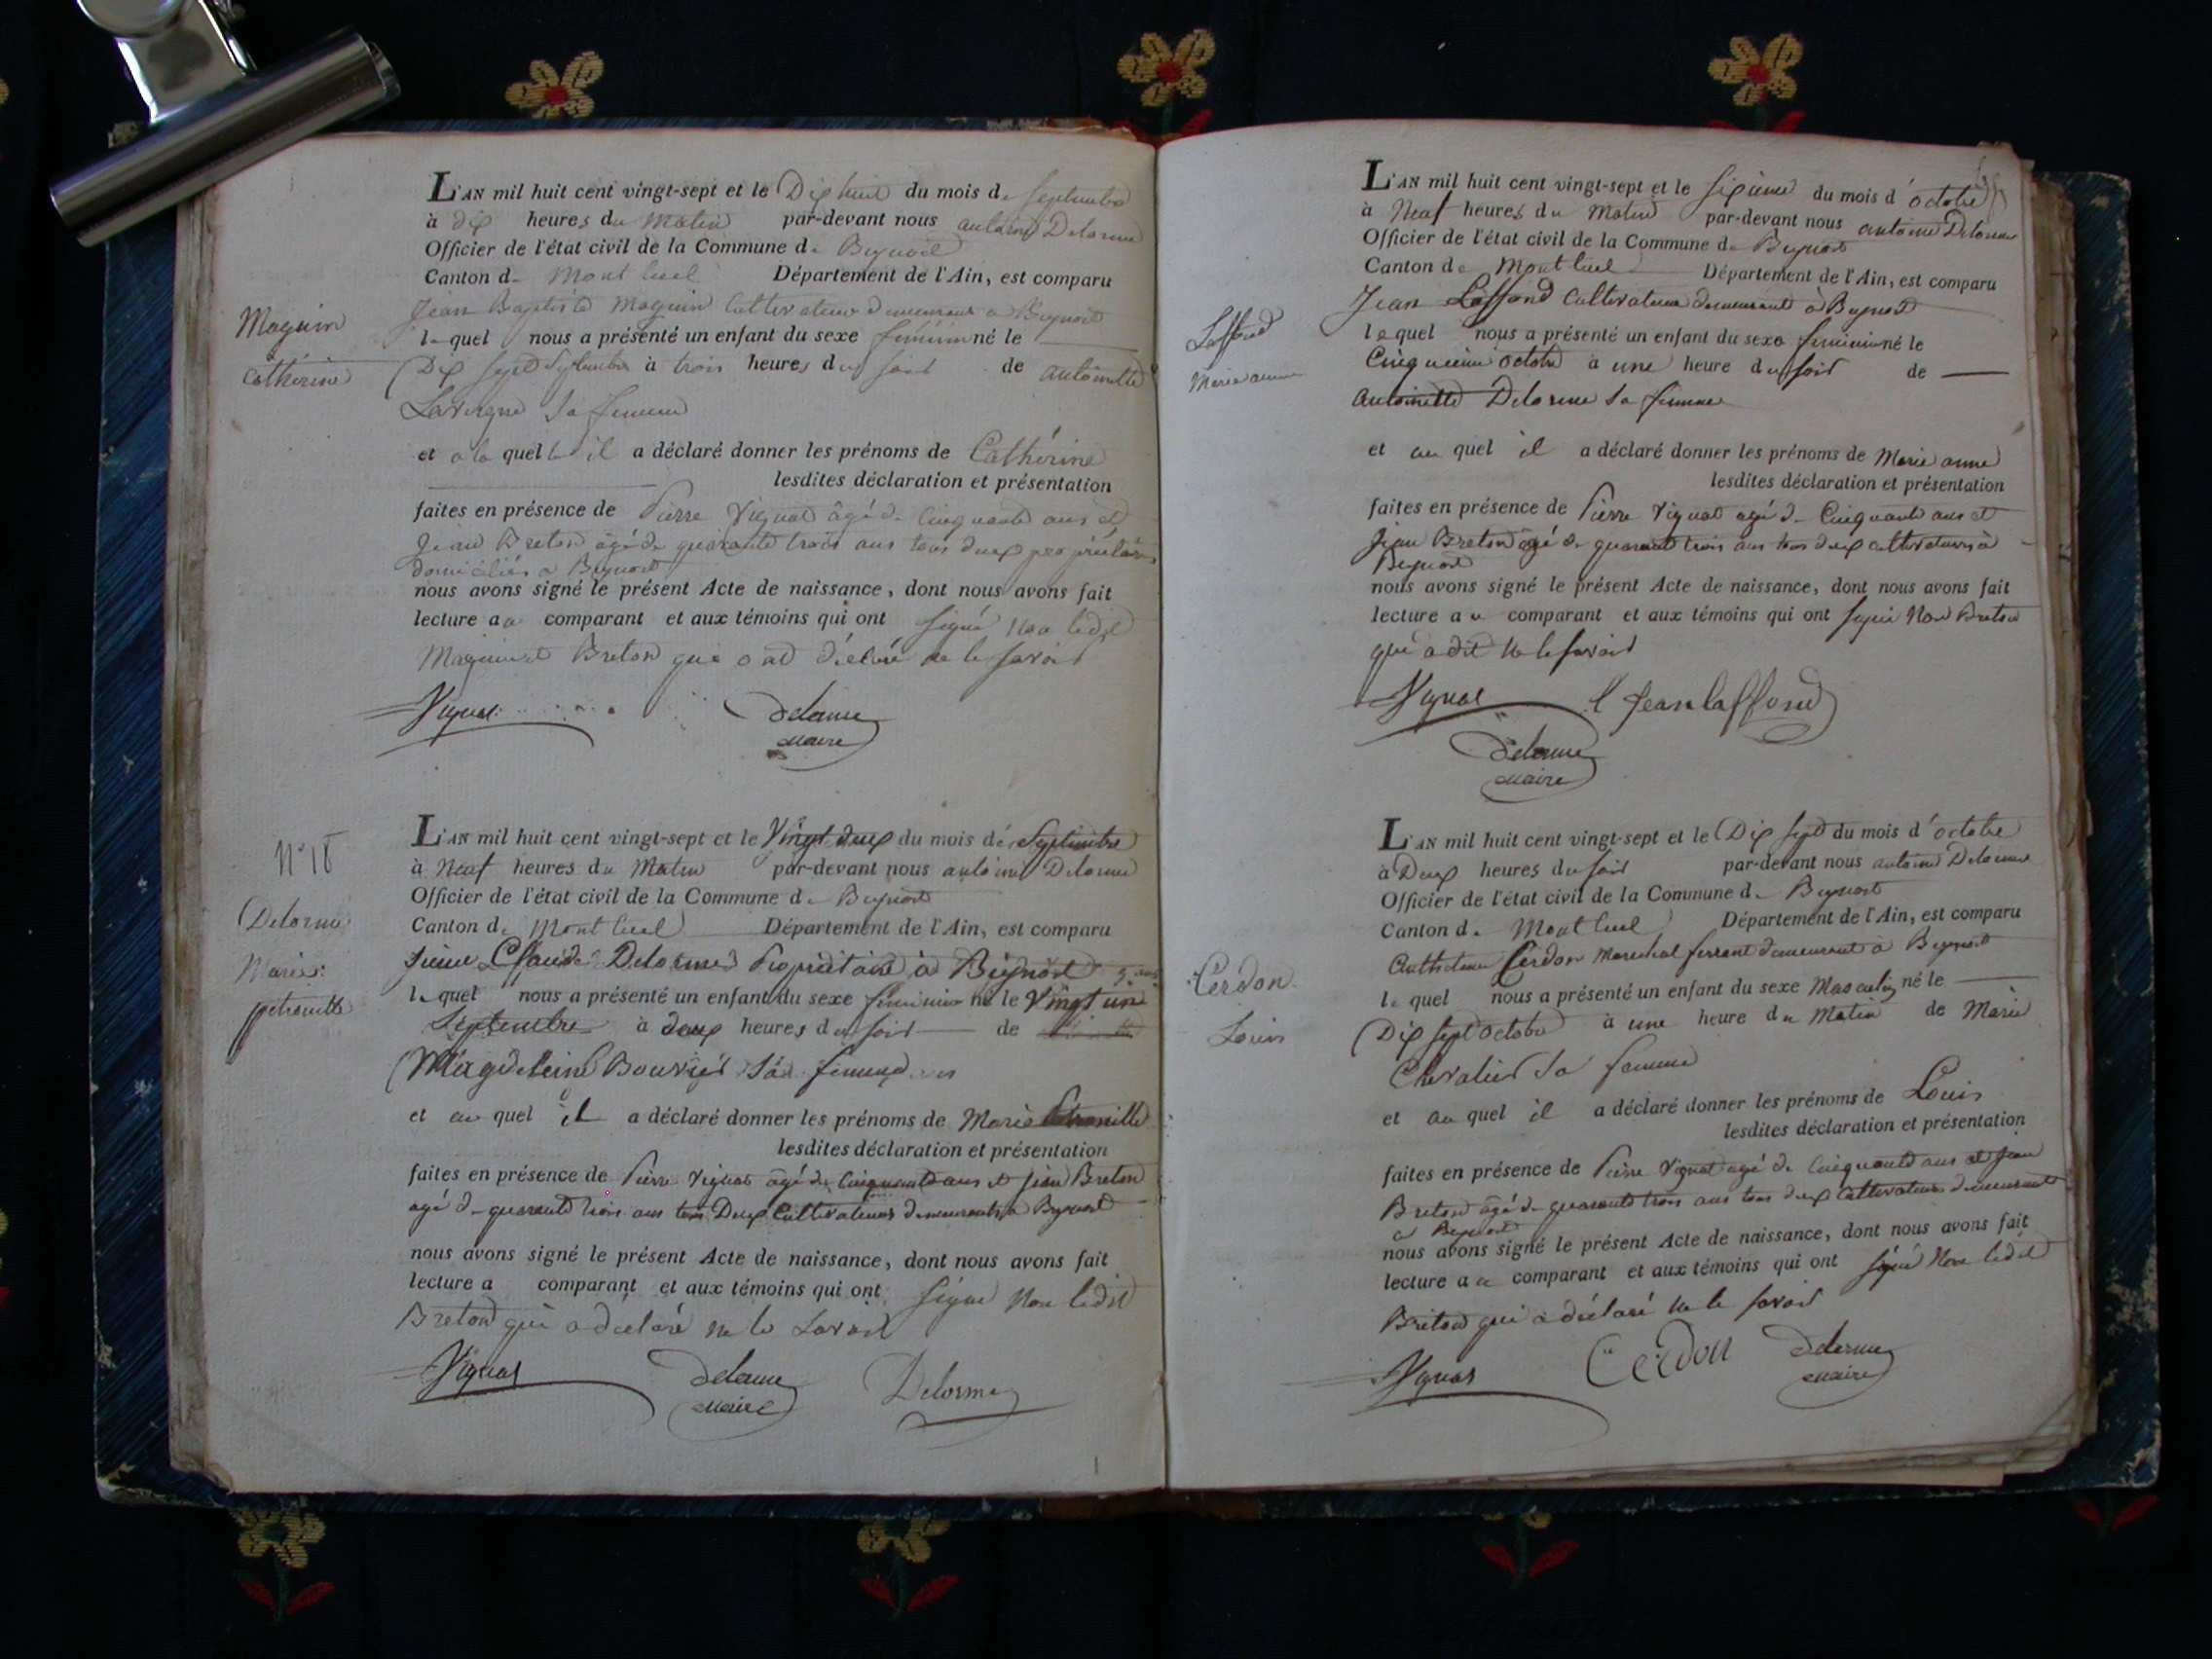 L'AN mil huit cent vingt-sept et le Dix huit du mois de Septembre
à dix heures du Matin par-devant nous antoine Delorme
Officier de l'état civil de la Commune de Beynost
Canton de Montluel Département de l'Ain, est comparu
Maguin
Jean Baptiste Maguin Cultivateur demeurant a Beynost
lequel nous a présenté un enfant du sexe féminin né le
Catherine
Dix sept Septembre à trois heures du soir de antoinette
Lavergne sa femme
et a la quelle il a déclaré donner les prénoms de Cathérine
lesdites déclaration et présentation
faites en présence de Pierre Vignat âgé de Cinquante ans et
Jean Breton âgé de quarante trois ans tous deux propriétaires
domiciliés a Beynost
nous avons signé le présent Acte de naissance, dont nous avons fait
lecture au comparant et aux témoins qui ont signé Non ledit
Maguin et Breton qui ont déclaré ne le savoir
Vignat Delorme
maire
L'AN mil huit cent vingt-sept et le Vingt deux du mois de Septembre
N° 18
à Neuf heures du Matin par-devant nous antoine Delorme
Officier de l'état civil de la Commune de Beynost
Delorme
Canton de Montluel Département de l'Ain, est comparu
Sieur Claude Delorme Propriétaire à Beynost
Marie
lequel nous a présenté un enfant du sexe feminin né le Vingt un
petronille
Septembre à deux heures du soir de
Magdeleine Bouvier sa femme
et au quel il a déclaré donner les prénoms de Marie Petronille
lesdites déclaration et présentation
faites en présence de Pierre Vignat âgé de Cinquante ans et jean Breton
agé de quarante trois ans tous Deux Cultivateurs demeurants a Beynost
nous avons signé le présent Acte de naissance, dont nous avons fait
lecture a comparant et aux témoins qui ont signé Non ledit
Breton qui a déclaré ne le savoir
Vignat Delorme Delorme
maire
L'AN mil huit cent vingt-sept et le sixième du mois d'octobre
à Neuf heures du Matin par-devant nous antoine Delorme
Officier de l'état civil de la Commune de Beynost
Canton de Montluel Département de l'Ain, est comparu
Jean Laffond Cultivateur demeurant à Beynost
Laffond
lequel nous a présenté un enfant du sexe feminin né le
Marie anne
Cinquième octobre à une heure du soir de
Antoinette Delorme sa femme
et au quel il a déclaré donner les prénoms de Marie anne
lesdites déclaration et présentation
faites en présence de Pierre Vignat agé de Cinquante ans et
Jean Breton âgé de quarante trois ans tous deux cultivateurs à
Beynost
nous avons signé le présent Acte de naissance, dont nous avons fait
lecture au comparant et aux témoins qui ont signé Non Breton
qui a dit ne le savoir
Vignat Jean laffond
Delorme
maire
L'AN mil huit cent vingt-sept et le Dix sept du mois d'octobre
à Deux heures du soir par-devant nous antoine Delorme
Officier de l'état civil de la Commune de Beynost
Canton de Montluel Département de l'Ain, est comparu
Cerdon Marechal ferrant demeurant à Beynost
Cerdon
lequel nous a présenté un enfant du sexe Masculin né le
Louis
Dix sept octobre à une heure du Matin de Marie
Chevalier sa femme
et au quel il a déclaré donner les prénoms de Louis
lesdites déclaration et présentation
faites en présence de Pierre Vignat agé de Cinquante ans et jean
Breton âgé de quarante trois ans tous deux Cultivateurs demeurants
a Beynost
nous avons signé le présent Acte de naissance, dont nous avons fait
lecture au comparant et aux témoins qui ont signé Non ledit
Breton qui a déclaré ne le savoir
Vignat Cerdon Delorme
maire